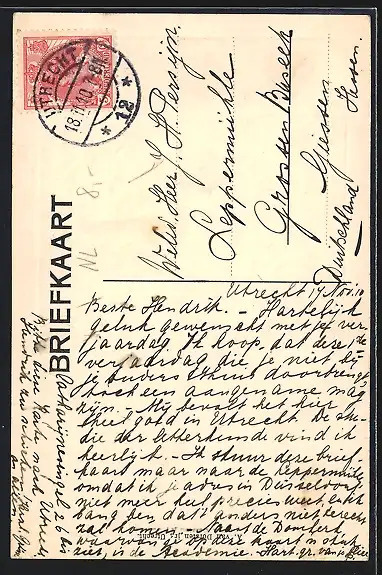 BRIEFKAART
UTRECHT
12
Weled. Heer J. H. Persijn.
Leppermühle
Grossen Buseck
Giessen
Hessen.
Deutschland
NL 8,-
Utrecht 17 Nov. 10
Beste Hendrik. - Hartelijk
geluk gewenscht met je ver-
jaardag. Ik hoop, dat deze
verjaardag die je niet bij
je ouders thuis doorbrengt
toch een aangename mag
zijn. - Mij bevalt het hier
heel goed in Utrecht. De stu-
die der letterkunde vind ik
heerlijk. - Ik stuur deze brief-
kaart maar naar de Leppermühle
omdat ik je adres in Düsseldorf
niet meer heel precies weet en ik
bang ben dat 't anders niet terecht
zal komen. Naast de Domkerk
waarvan je op deze kaart 'n
ziet, is de Academie. Hart. gr. van je
Catharijnesingel 26 bis